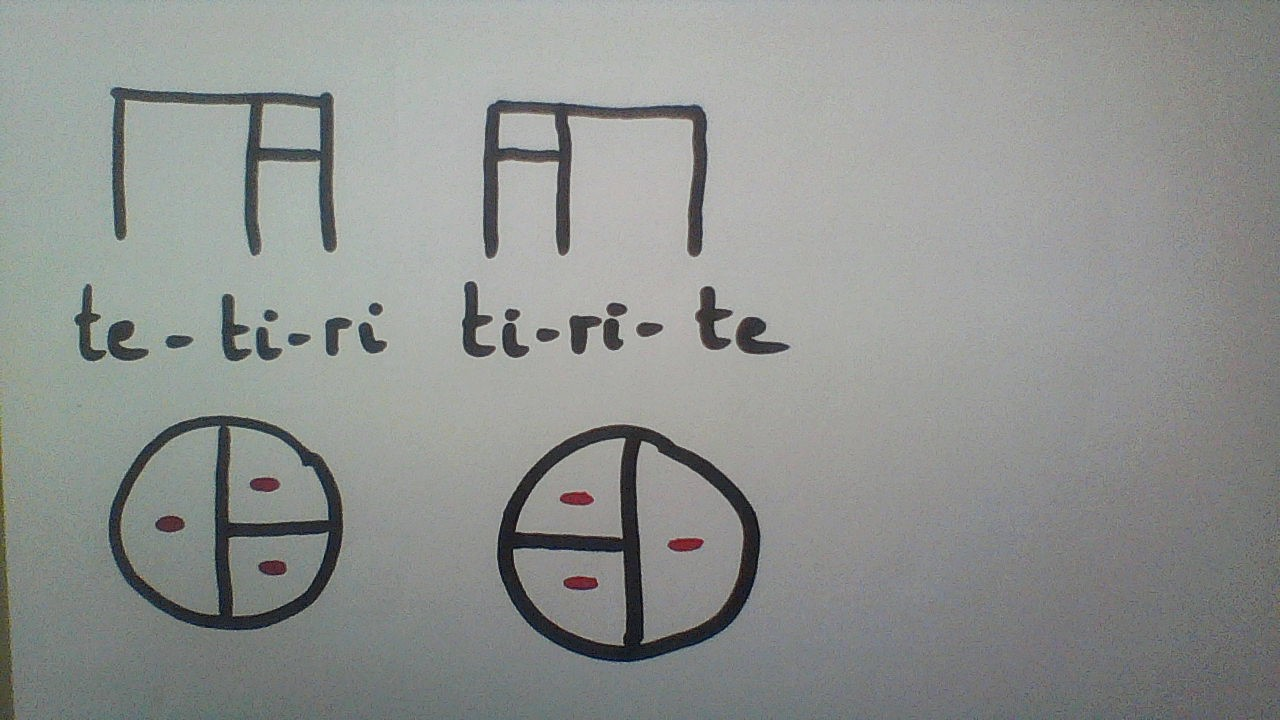 te-ti-ri ti-ri-te